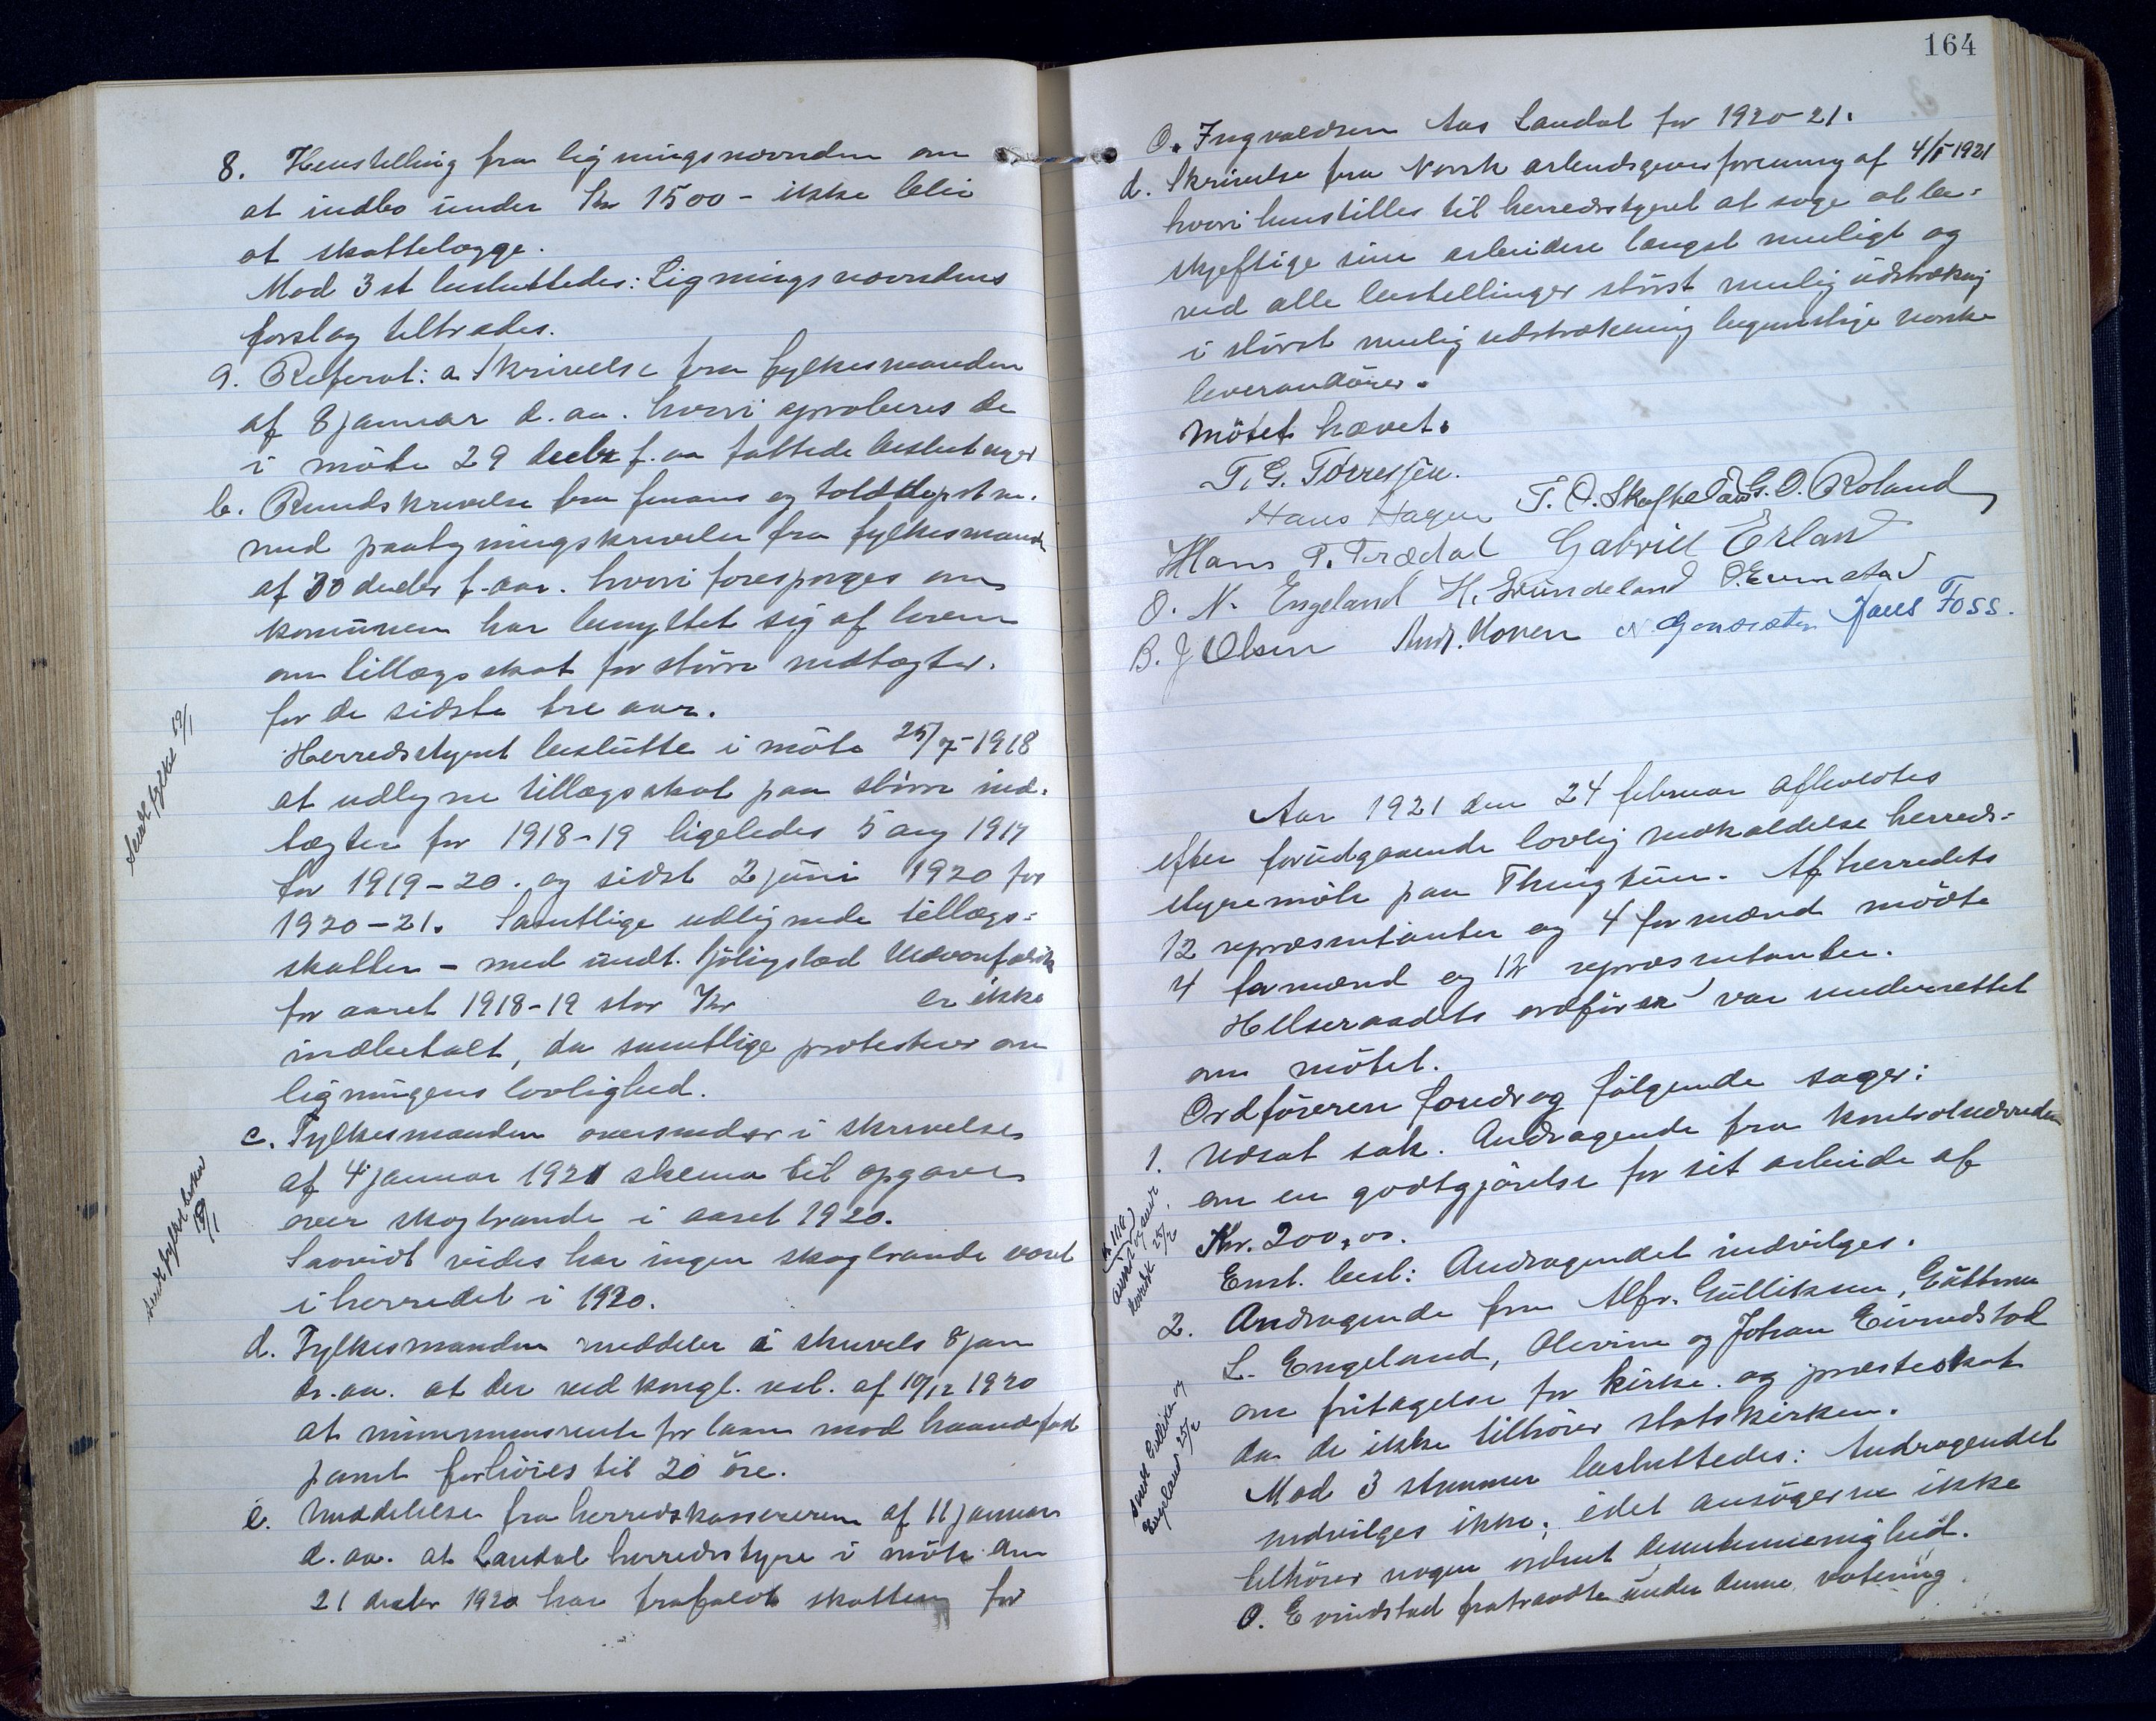 8. Henstilling fra ligningsnævnden om
at indbo under Kr 1500 - ikke blir
at skattelægge.
Mod 3 st besluttedes: Ligningsnævndens
forslag tiltrædes.
9. Referat: a Skrivelse fra fylkesmanden
af 8 januar d. aa. hvori aproberes de
i möte 29 decbr f. aa fattede beslutninger
b. Rundskrivelse fra finans og tolddepartm.
med paategningskrivelse fra fylkesmanden
af 30 decbr f. aar. hvori foresporges om
komunen har benyttet sig af loven
om tillægsskat for större indtægter.
for de sidste tre aar.
Herredsstyret beslutte i möte 25/7-1918
at udligne tillægsskat paa större ind-
tægter for 1918-19 ligeledes 5 aug 1919
for 1919-20. og sidst 2 juni 1920 for
1920-21. Samtlige udlignede tillægs-
skatter - med undt. Fjöligstad Uldvarefabrik
for aaret 1918-19 stor Kr er ikke
indbetalt, da samtlige protesterer om
ligningens lovlighed.
c. Fylkesmanden oversender i skrivelse
af 4 januar 1921 skema til opgave
over skogbrande i aaret 1920.
Saavidt vides har ingen skogbrande været
i herredet i 1920.
d. Fylkesmanden meddeler i skrivels 8 jan
ds. aa. at der ved kongl. resl. af 10/12 1920
at minimumsrente for laan mod haandfast
pant forhöies til 20 öre.
e. Meddelelse fra herredskassereren af 11 januar
d. aa. at Laudal herredsstyre i möte den
21 decbr 1920 har frafaldt skatten for
Sendt fylket 19/1
Sendt fylket
19/1
164
O. Ingvaldsen Aas Laudal for 1920-21.
d. Skrivelse fra Norsk arbeidsgiverforening af 4/1 1921
hvori henstilles til herredsstyret at söge at be-
skjeftige sine arbeidere længst muligt og
ved alle bestellinger störst mulig udstrækning
i störst mulig udstrækning begunstige norske
leverandörer.
Mötet hævet.
T. G. Torressen.
Hans Hagen T. O. Skofteland G. O. Roland
Hans T. Trædal Gabriel Erland
O. N. Engeland H. Sundeland O. Evinstad
B. J Olsen Andr. Honen N Gonsæter Hans Foss.
Aar 1921 den 24 februar afholdtes
efter forudgaaende lovlig indkaldelse herreds-
styremöte paa Thingtun. Af herredets
12 repræsentanter og 4 formænd mödte
4 formænd og 12 repræsentanter.
Helseraadets ordförer var underrettet
om mötet.
Ordföreren foredrog fölgende sager:
1. Udsat sak. Andragende fra kontrolnævnden
om en godtgjörelse for sit arbeide af
Kr. 200,00.
Enst. besl: Andragendet indvilges.
2. Andragende fra Alfr. Gulliksen, Guttorm
L. Engeland, Olevine og Johan Eivindstad
om fritagelse for kirke. og presteskat
da de ikke tilhörer statskirken.
Mod 3 stemmer besluttedes: Andragendet
indvilges ikke; idet ansögerne ikke
tilhörer nogen ordnet dissentermenighed.
O. Evindstad fratraadte under denne votering.
Sendt Gulliksen og
Engeland 25/2